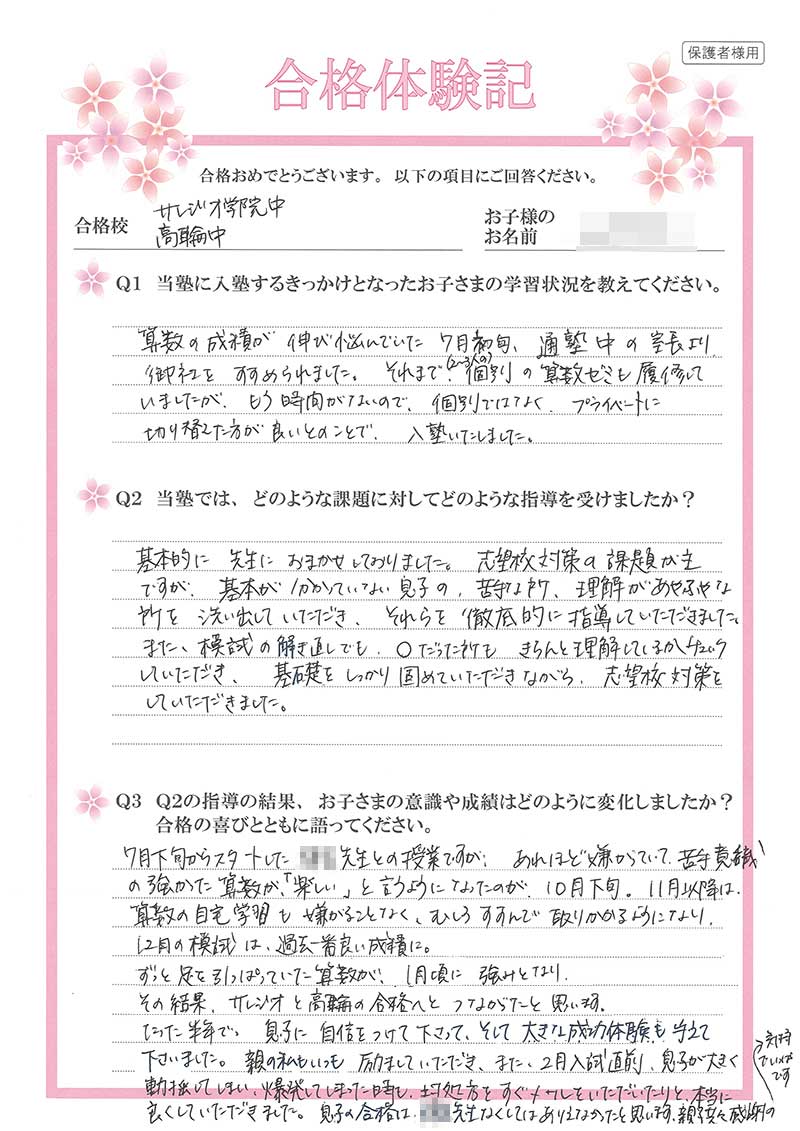 保護者様用
合格体験記
合格おめでとうございます。以下の項目にご回答ください。
合格校
サレジオ学院中
高輪中
お子様の
お名前
Q1 当塾に入塾するきっかけとなったお子さまの学習状況を教えてください。
算数の成績が伸び悩んでいた7月初旬、通塾中の室長より
御社をすすめられました。それまで、(2〜3人の)個別の算数ゼミも履修して
いましたが、もう時間がないので、個別ではなく、プライベートに
切り替えた方が良いとのことで、入塾いたしました。
Q2 当塾では、どのような課題に対してどのような指導を受けましたか？
基本的に先生におまかせしておりました。志望校対策の課題が主
ですが、基本が分かっていない息子の、苦手な所、理解があやふやな
所を洗い出していただき、それらを徹底的に指導していただきました。
また、模試の解き直しでも、○だった所もきちんと理解しているかチェック
していただき、基礎をしっかり固めていただきながら、志望校対策を
していただきました。
Q3 Q2の指導の結果、お子さまの意識や成績はどのように変化しましたか？
合格の喜びとともに語ってください。
7月下旬からスタートした 先生との授業ですが、あれほど嫌がっていて、苦手意識
の強かった算数が、「楽しい」と言うようになったのが、10月下旬。11月以降は、
算数の自宅学習も嫌がることなく、むしろすすんで取りかかるようになり、
12月の模試は、過去一番良い成績に。
ずっと足を引っぱっていた算数が、1月頃に強みとなり、
その結果、サレジオと高輪の合格へとつながったと思います。
たった半年で、息子に自信をつけて下さって、そして大きな成功体験も与えて
下さいました。親の私もいつも励ましていただき、また、2月入試直前、息子が大きく
動揺してしまい、爆発してしまった時も、対処方をすぐメールをいただいたりと、本当に
良くしていただきました。息子の合格は、 先生なくしてはありえなかったと思います。親子共々感謝の
気持ち
でいっぱい
です